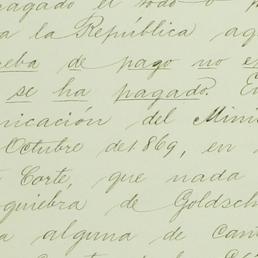 pagado el todo o p
a la República aq
eba de pago no e
se ha pagado. E
nicación del Mini
Octubre de 1869, en
Corte, que nada
quiebra de Goldsch
a alguna de can